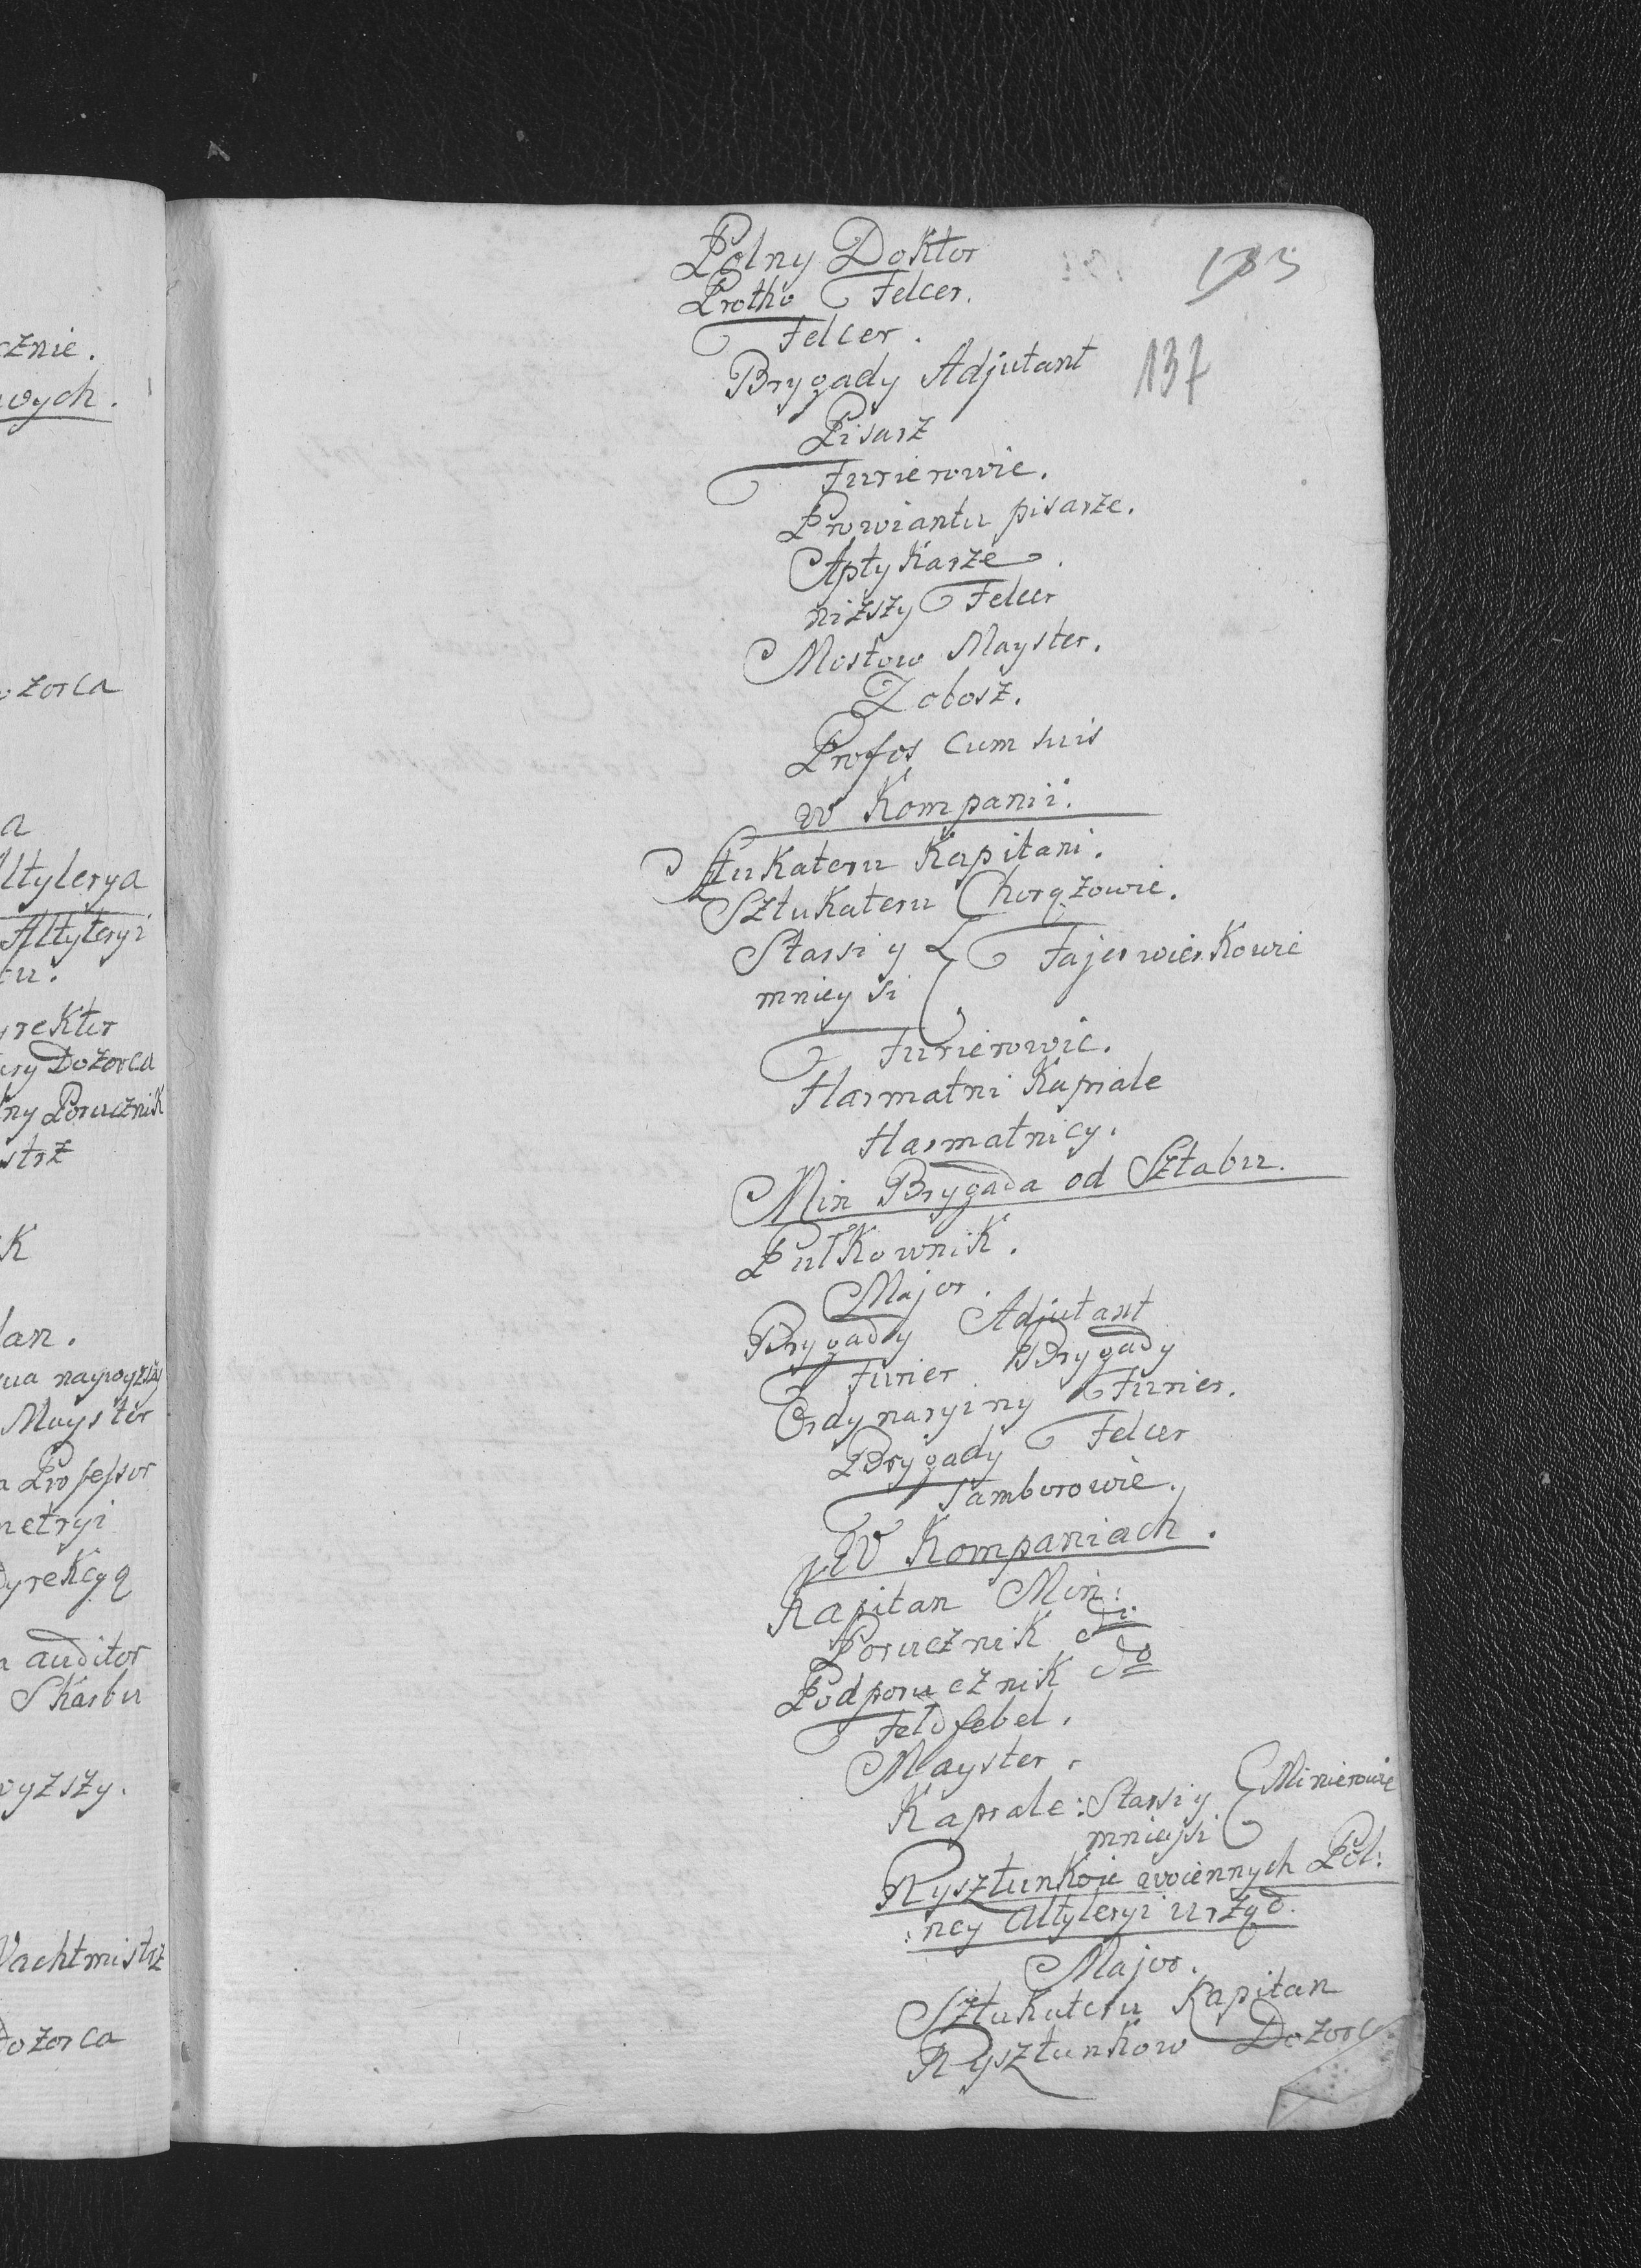 znie.
wych.
ozorca
a
Altylerya
Altyleryi
tu.
yrektor
ury Dozorca
lny Porucznik
strz
k
lan.
ua naywyzszy
Mayster
a Professor
metryi
dyrekcyą
a auditor
Skarbu
wyzszy.
Wachtmistrz
Dozorca
133
137
Polny Doktor
Protho Felcer.
Felcer.
Brygady Adjutant
Pisarz
Furierowie.
Prowiantu pisarze.
Aptykarze.
niższy Felcer
Mostow Mayster.
Dobosz.
Profos cum suis
w Kompanii.
Sztukateru Kapitani.
Sztukateru Chorążowie.
Starsi y Fajerwierkowie
mniey si
Furierowie.
Harmatni Kaprale
Harmatnicy.
Min Brygada od Sztabu.
Pułkownik.
Major.
Brygady Adjutant
Furier Brygady
Ordynaryiny Furier.
Brygady Felcer
Tamborowie.
W Kompaniach.
Kapitan Min:
Porucznik do
Podporucznik do
Feldfebel.
Mayster.
Kaprale: Starsi y Minierowie
mniejsi
Rysztunkow wociennych Pol:
:ney Altyleryi urząd.
Major.
Sztukateru Kapitan
Rysztunkow Dozorca